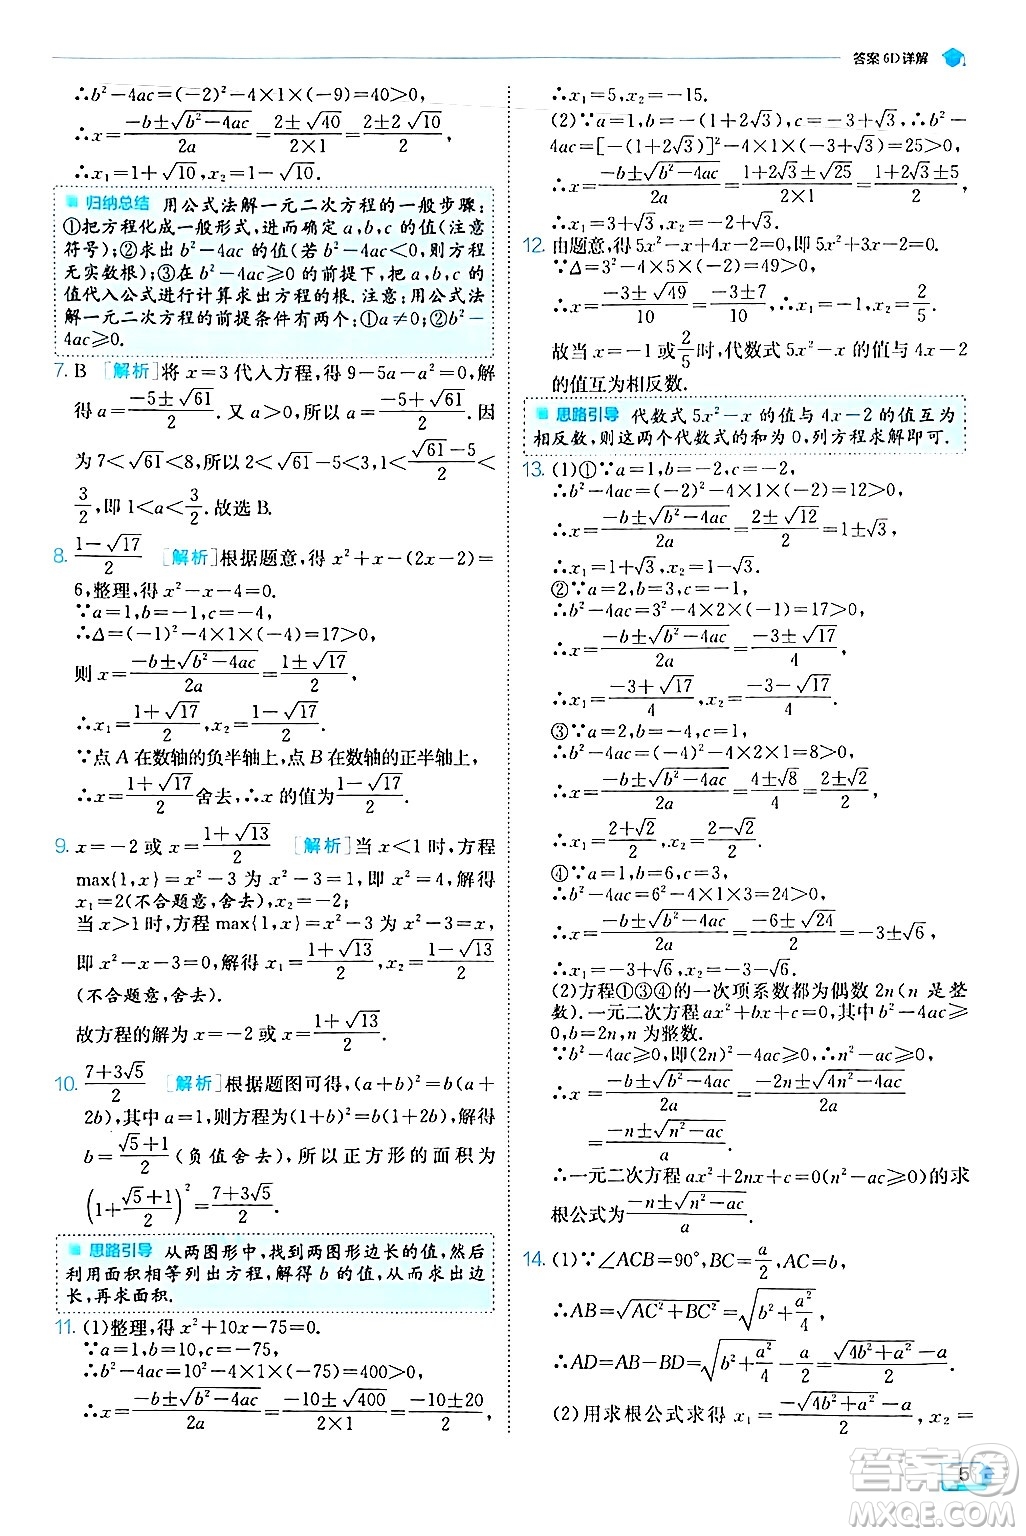 答案 6D 详解
∴b²-4ac=(-2)²-4×1×(-9)=40>0,
∴x=(-b±√(b²-4ac))/(2a)=(2±√40)/(2×1)=(2±2√10)/2,
∴x₁=1+√10,x₂=1-√10.
归纳总结 用公式法解一元二次方程的一般步骤:
①把方程化成一般形式,进而确定a,b,c的值(注意
符号);②求出b²-4ac的值(若b²-4ac<0,则方程
无实数根);③在b²-4ac≥0的前提下,把a,b,c的
值代入公式进行计算求出方程的根.注意:用公式法
解一元二次方程的前提条件有两个:①a≠0;②b²-
4ac≥0.
7. B [解析]将x=3代入方程,得9-5a-a²=0,解
得a=(-5±√61)/2.又a>0,所以a=(-5+√61)/2.因
为7<√61<8,所以2<√61-5<3,所以1<(√61-5)/2<
3/2,即1<a<3/2.故选B.
8. (1-√17)/2 [解析]根据题意,得x²+x-(2x-2)=
6,整理,得x²-x-4=0.
∵a=1,b=-1,c=-4,
∴Δ=(-1)²-4×1×(-4)=17>0,
则x=(-b±√(b²-4ac))/(2a)=(1±√17)/2,
∴x₁=(1+√17)/2,x₂=(1-√17)/2.
∵点A在数轴的负半轴上,点B在数轴的正半轴上,
∴x=(1+√17)/2舍去,∴x的值为(1-√17)/2.
9. x=-2或x=(1+√13)/2 [解析]当x<1时,方程
max{1,x}=x²-3为x²-3=1,即x²=4,解得
x₁=2(不合题意,舍去),x₂=-2;
当x>1时,方程max{1,x}=x²-3为x²-3=x,
即x²-x-3=0,解得x₁=(1+√13)/2,x₂=(1-√13)/2
(不合题意,舍去).
故方程的解为x=-2或x=(1+√13)/2.
10. (7+3√5)/2 [解析]根据题图可得,(a+b)²=b(a+
2b),其中a=1,则方程为(1+b)²=b(1+2b),解得
b=(√5+1)/2(负值舍去),所以正方形的面积为
(1+(√5+1)/2)²=(7+3√5)/2.
思路引导 从两图形中,找到两图形边长的值,然后
利用面积相等列出方程,解得b的值,从而求出边
长,再求面积.
11. (1)整理,得x²+10x-75=0.
∵a=1,b=10,c=-75,
∴b²-4ac=10²-4×1×(-75)=400>0,
∴x=(-b±√(b²-4ac))/(2a)=(-10±√400)/(2×1)=(-10±20)/2,
∴x₁=5,x₂=-15.
(2)∵a=1,b=-(1+2√3),c=-3+√3,∴b²-
4ac=[-(1+2√3)]²-4×1×(-3+√3)=25>0,
∴x=(-b±√(b²-4ac))/(2a)=(1+2√3±√25)/(2×1)=(1+2√3±5)/2,
∴x₁=3+√3,x₂=-2+√3.
12. 由题意,得5x²-x+4x-2=0,即5x²+3x-2=0.
∵Δ=3²-4×5×(-2)=49>0,
∴x=(-3±√49)/10=(-3±7)/10,∴x₁=-1,x₂=2/5.
故当x=-1或2/5时,代数式5x²-x的值与4x-2
的值互为相反数.
思路引导 代数式5x²-x的值与4x-2的值互为
相反数,则这两个代数式的和为0,列方程求解即可.
13. (1)①∵a=1,b=-2,c=-2,
∴b²-4ac=(-2)²-4×1×(-2)=12>0,
∴x=(-b±√(b²-4ac))/(2a)=(2±√12)/2=1±√3,
∴x₁=1+√3,x₂=1-√3.
②∵a=2,b=3,c=-1,
∴b²-4ac=3²-4×2×(-1)=17>0,
∴x=(-b±√(b²-4ac))/(2a)=(-3±√17)/4,
∴x₁=(-3+√17)/4,x₂=(-3-√17)/4.
③∵a=2,b=-4,c=1,
∴b²-4ac=(-4)²-4×2×1=8>0,
∴x=(-b±√(b²-4ac))/(2a)=(4±√8)/4=(2±√2)/2,
∴x₁=(2+√2)/2,x₂=(2-√2)/2.
④∵a=1,b=6,c=3,
∴b²-4ac=6²-4×1×3=24>0,
∴x=(-b±√(b²-4ac))/(2a)=(-6±√24)/2=-3±√6,
∴x₁=-3+√6,x₂=-3-√6.
(2)方程①③④的一次项系数都为偶数2n(n是整
数).一元二次方程ax²+bx+c=0,其中b²-4ac≥
0,b=2n,n为整数.
∵b²-4ac≥0,即(2n)²-4ac≥0,∴n²-ac≥0,
∴x=(-b±√(b²-4ac))/(2a)=(-2n±2√(n²-ac))/(2a)
=(-n±√(n²-ac))/a.
∴一元二次方程ax²+2nx+c=0(n²-ac≥0)的求
根公式为(-n±√(n²-ac))/a.
14. (1)∵∠ACB=90°,BC=a/2,AC=b,
∴AB=√(AC²+BC²)=√(b²+a²/4),
∴AD=AB-BD=√(b²+a²/4)-a/2=(√(4b²+a²)-a)/2.
(2)用求根公式求得x₁=(-√(4b²+a²)-a)/2,x₂=
5
答案圈
MXQE.COM